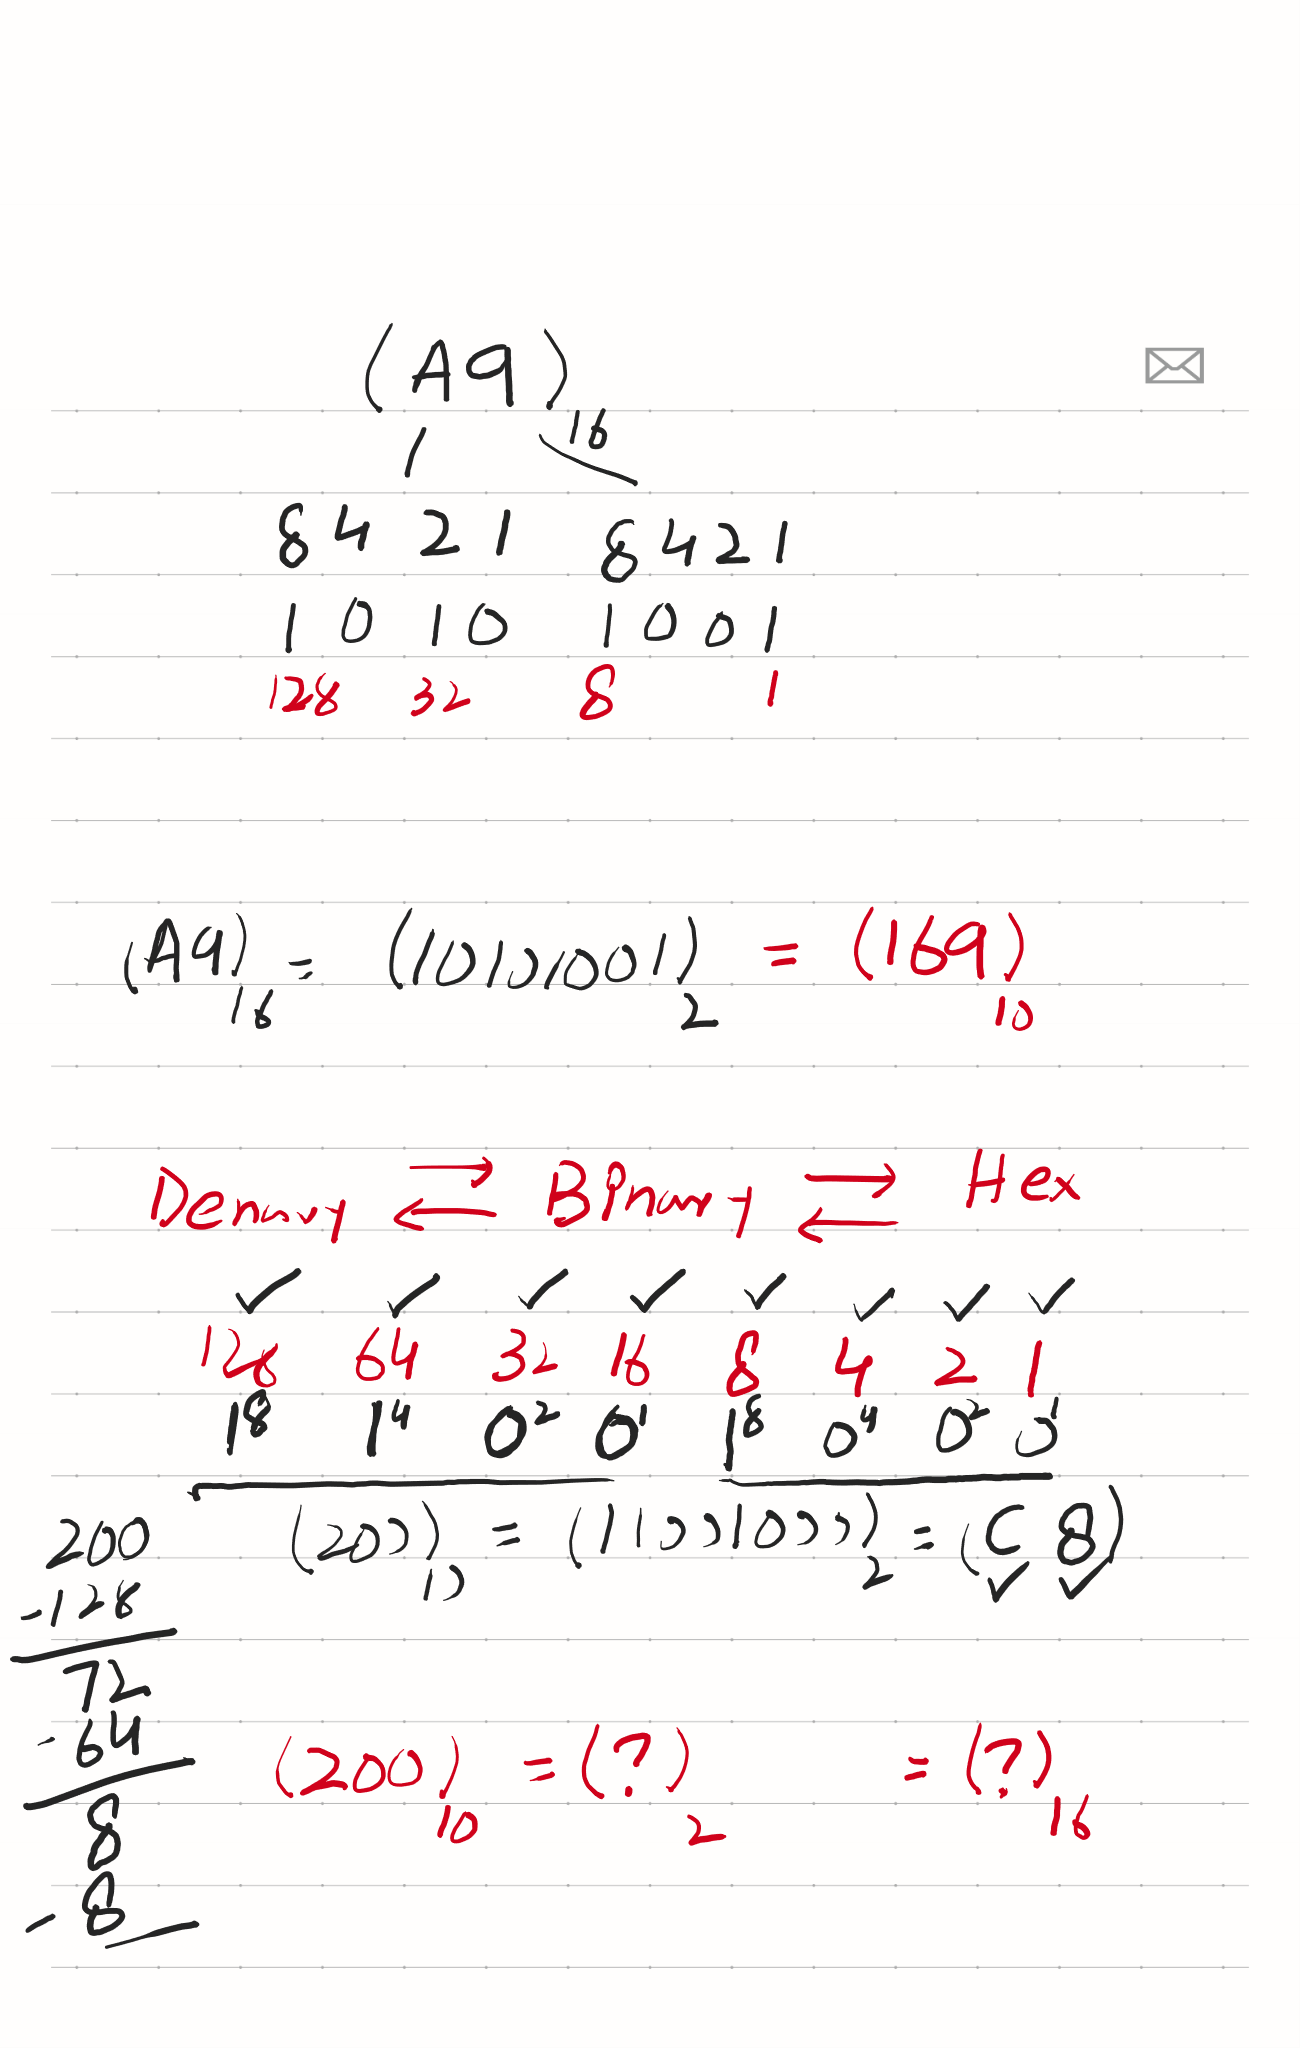 (A9)16
8 4 2 1 8 4 2 1
1 0 1 0 1 0 0 1
128 32 8 1
(A9)16 = (10101001)2 = (169)10
Denary ⇄ Binary ⇄ Hex
✓ ✓ ✓ ✓ ✓ ✓ ✓ ✓
128 64 32 16 8 4 2 1
1⁸ 1⁴ 0² 0¹ 1⁸ 0⁴ 0² 0¹
200 (200)10 = (11001000)2 = (C 8)
-128 ✓ ✓
72
-64
(200)10 = (?)2 = (?)16
8
- 8